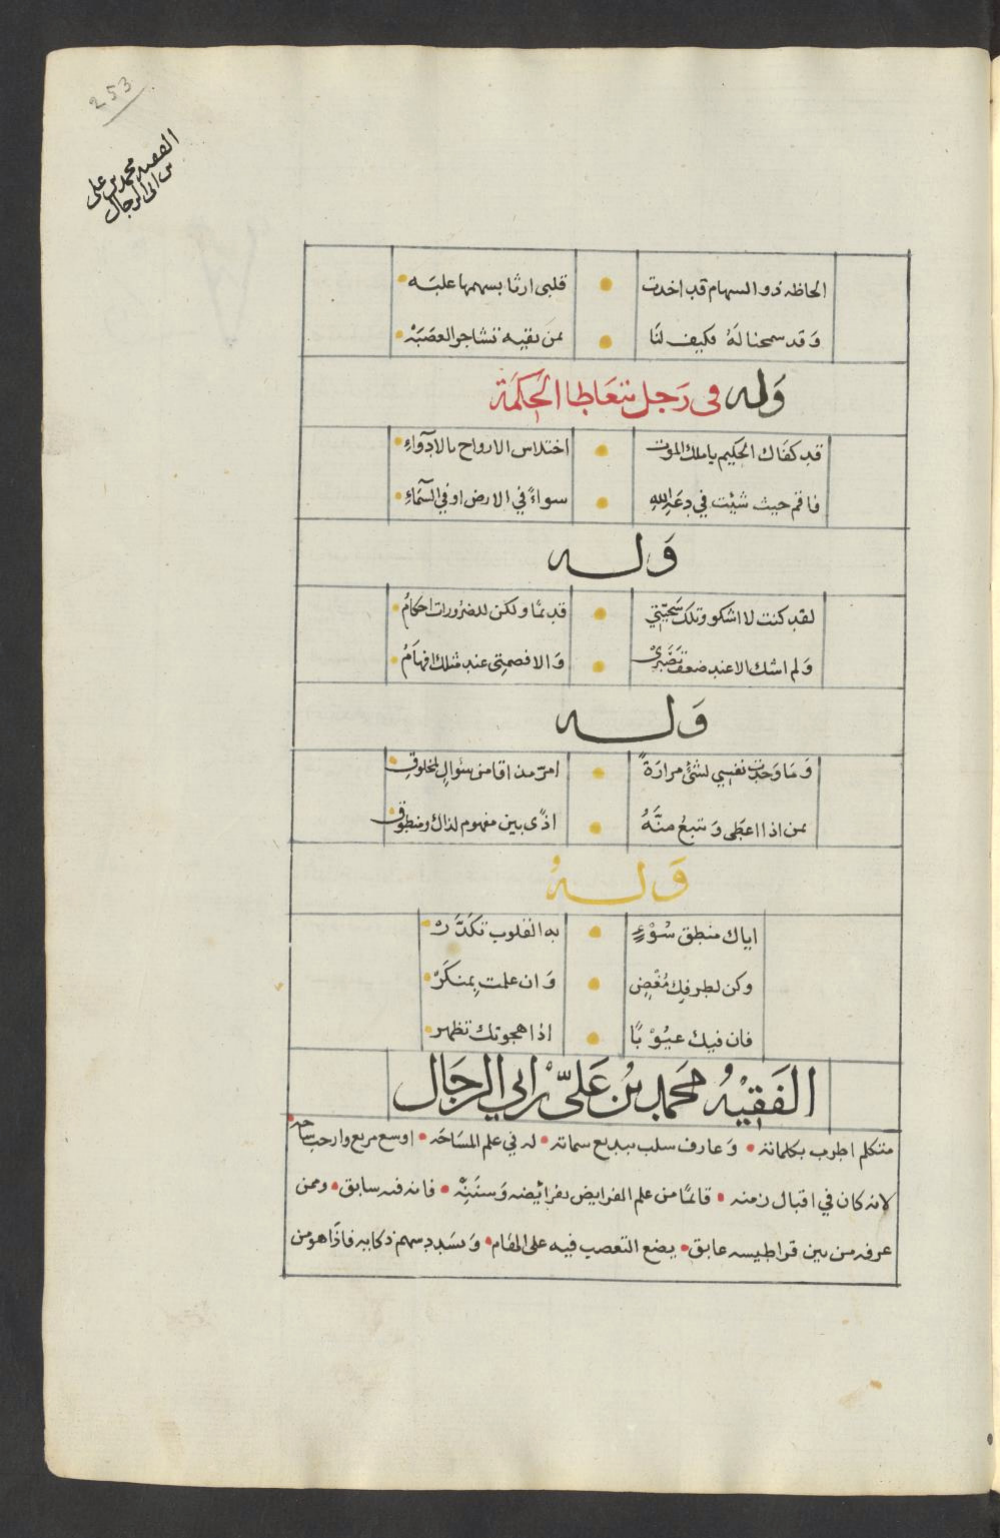 253
الفقيه محمد بن على
بن ابى الرجال
الحاظه ذو السهام قد اخدت • قلبى ارثا بسهمها علبَه •
وَقد سمحنا لَهُ فكيف لنَا • بمن بقيه تشاجر العصَبَهْ •
وَله فى رَجل تتعَاطا الحَكمَة
قد كفَاك الحكيم ياملك الموت • اختلاس الارواح بالادوَاءِ •
فاقم حيث شيْت في دعَة اللهِ • سواءً في الارض او في السَّمَاءِ •
وَلــه
لقد كنت لا اشكو وتلك سَجيّتي • قدىمًا ولكن للضرُورات احكامُ •
وَلم اشك الا عند ضعف تَصَبَّرىْ • وَالا فصمتى عند مثلك افهَامُ •
وَلــه
وَمَا وَجدت نفسي لشئ مرارَةً • امرّ من اقامن سُوالٍ لمخلوقِ •
بمن اذا اعطى وَتتبعُ منَّهُ • اذًى بين مفهوم لذاك ومنطوق •
وَلــهُ
اياك منطق سُوْءٍ • به القلوب تكَدَّرْ •
وكن لطرفك مُغضٍ • وَان علمت بِمنكَرْ •
فان فيك عيُوْبًا • اذا هجوتك تظهر •
الفَقِيْهُ مُحَمد بْن عَلىّ بْن ابي الرجَال
متكلم اطرب بكلماته • وَعارف سلب ببديع سماته • له في علم المسَاحَه • اوسع مربع وارحب ساحه •
لانه كان في اقبال زمنه • قائمًا من علم الفرايض بفرائضه وَسننِهْ • فانه فيه سابق • وممن
عرفه من بين قراطيسه عابق • يضع التعصب فيه على المقَام • وَيسَدد سهم ذكايه فاذَا هو من